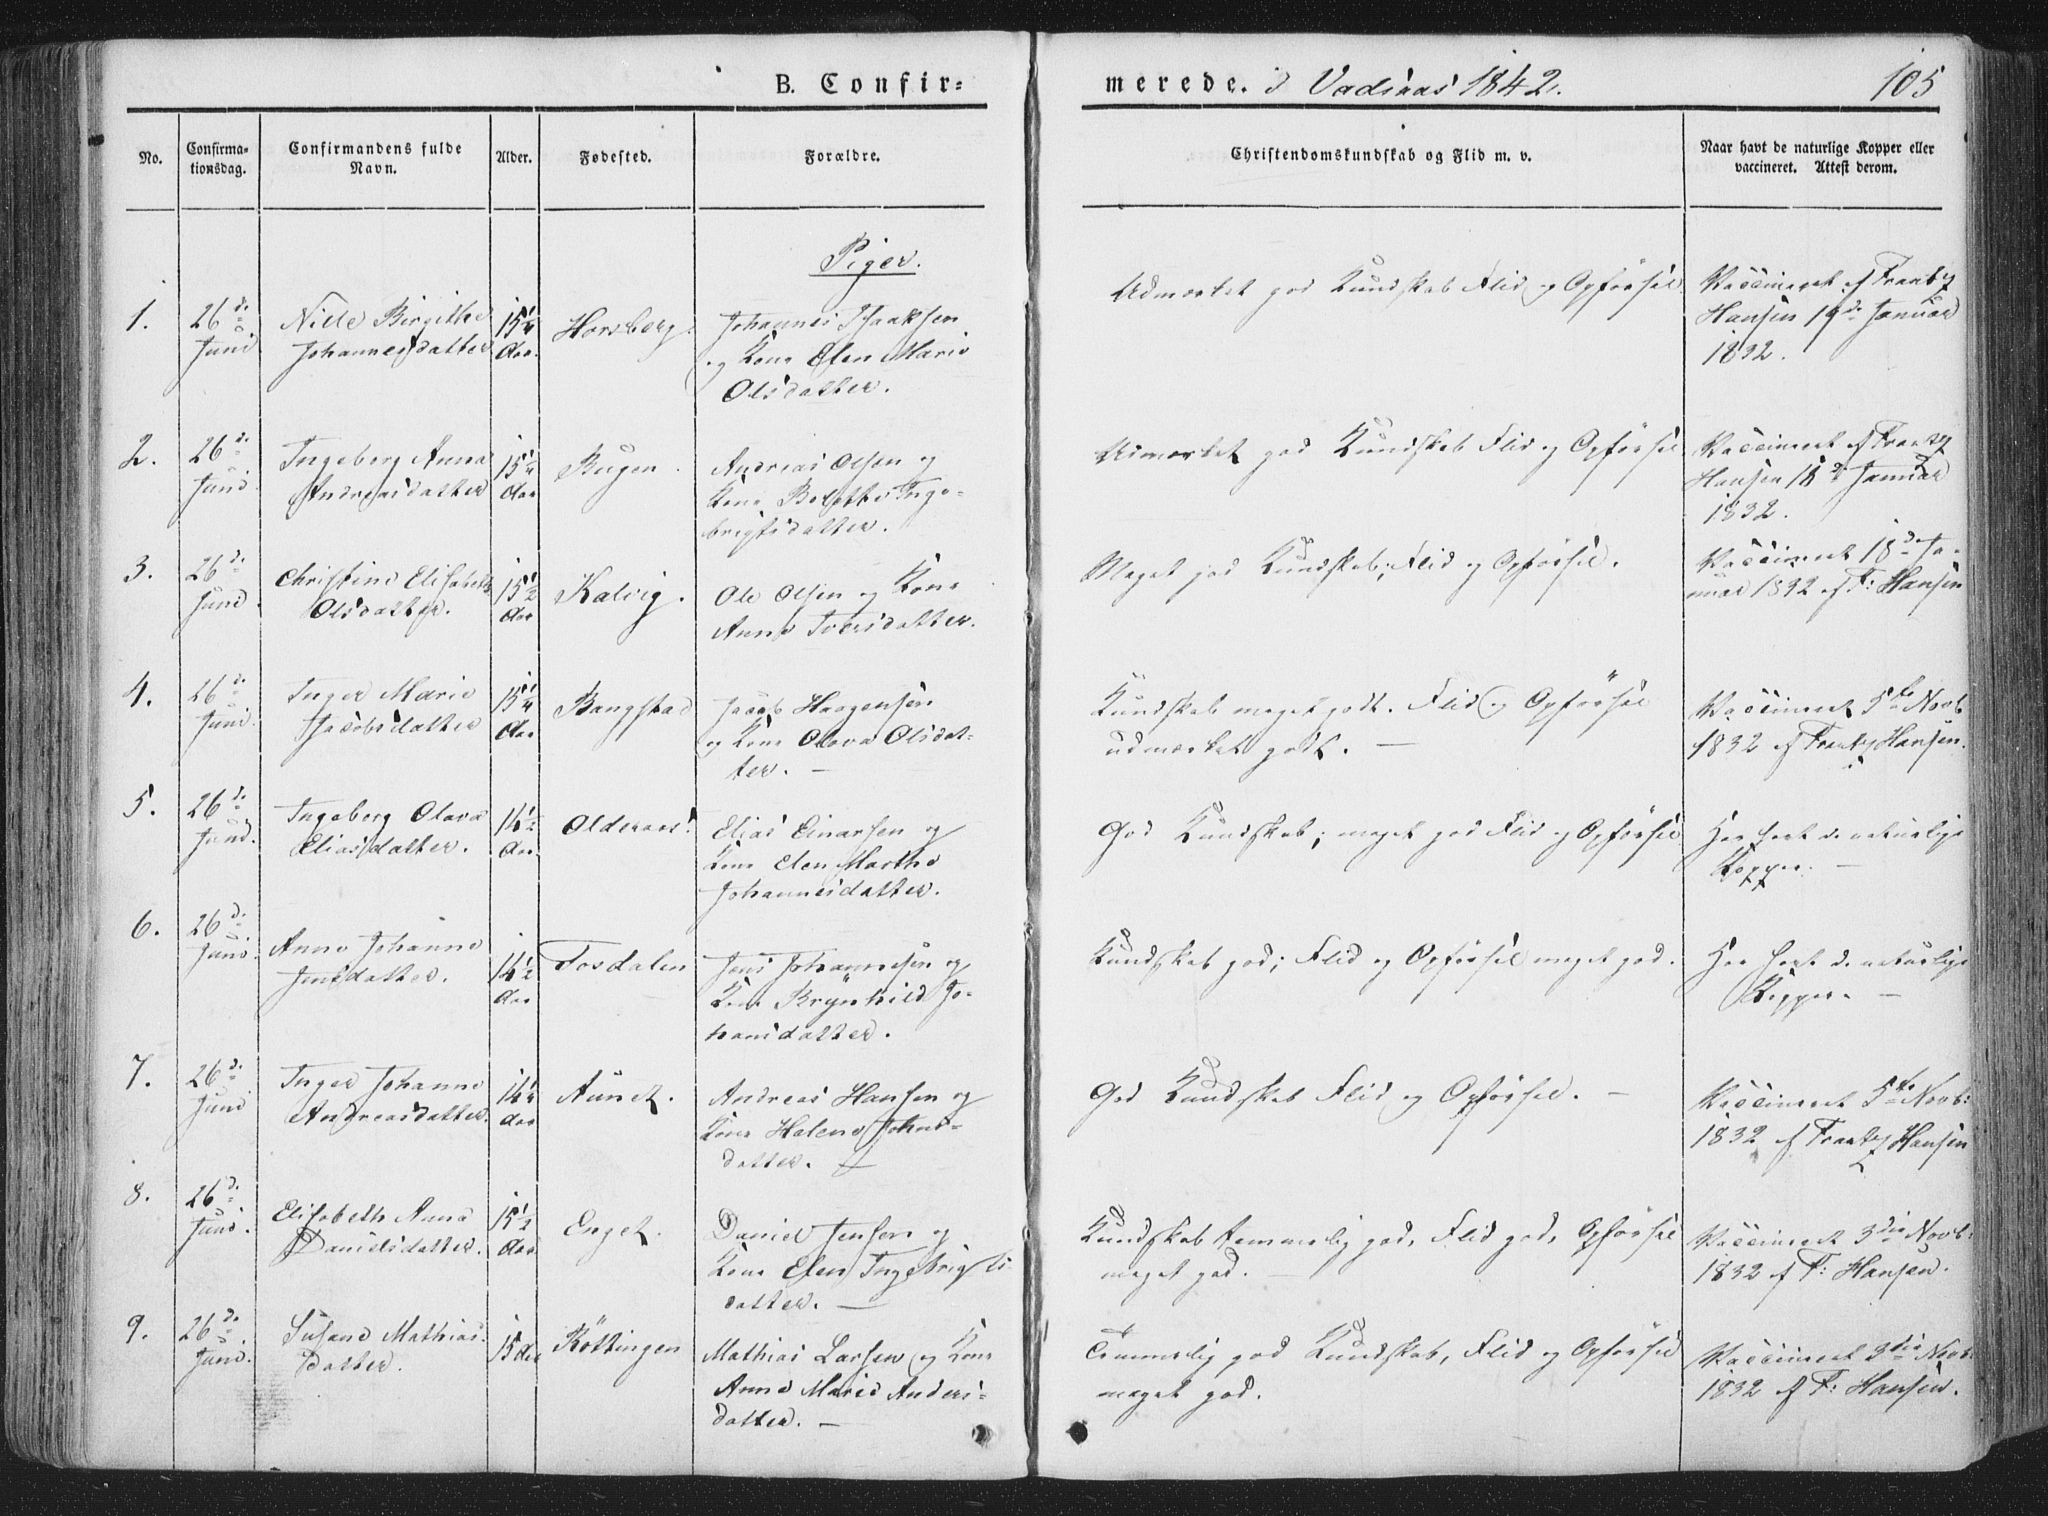 B. Confirmerede. i Vadsaas 1842. 105
No. Confirmationsdag. Confirmandens fulde Navn. Alder. Fødested. Forældre. Christendomskundskab og Flid m. v. Naar havt de naturlige Kopper eller vaccineret. Attest derom.
Piger.
1. 26de Juni Nille Birgithe Johannesdatter 15 1/4 Aar. Horsberg. Johannes Isaaksen og Kone Elen Marie Olsdatter. Udmærket god Kundskab Flid og Opførsel Vaccineret af Frantz Hansen 19de Januar 1832.
2. 26de Juni. Ingeborg Anna Andreasdatter 15 1/4 Aar Bugen. Andreas Olsen og Kone Ingebrigtsdatter. Udmærket god Kundskab Flid og Opførsel Vaccineret af Frantz Hansen 18de Januar 1832.
3. 26de Juni. Christine Elisabeth Olsdatter. 15 1/2 Aar Kalvig. Ole Olsen og Kone Anne Iversdatter. Meget god Kundskab; Flid og Opførsel. Vaccineret 18de Januar 1832 af F: Hansen
4. 26de Juni. Inger Marie Jacobsdatter 15 1/4 Aar Bangstad Jacob Haagensen og Kone Olava Olsdatter. — Kundskab meget godt. Flid og Opførsel udmærket godt. — Vaccineret 5te Novb 1832 af Frantz Hansen.
5. 26de Juni. Ingeborg Olava Eliasdatter. 14 1/2 Aar. Olderaas. Elias Einarsen og Kone Elen Marthe Johannesdatter. God Kundskab; meget god Flid og Opførsel Har havt de naturlige Kopper. —
6. 26de Juni. Anne Johanne Jensdatter. 14 1/2 Aar Fosdalen Jens Johannesen og Kone Brynhild Johansdatter. Kundskab god; Flid og Opførsel meget god. Har havt de naturlige Kopper. —
7. 26de Juni Inger Johanne Andreasdatter. 16 1/4 Aar Aunet. Andreas Hansen og Kone Helene Johnsdatter. God Kundskab Flid og Opførsel. — Vaccineret 5te Novb: 1832 af Frantz Hansen
8. 26de Juni. Elisabeth Anna Danielsdatter. 15 1/2 Aar. Enget. Daniel Jensen og Kone Elen Ingebrigtsdatter. — Kundskab temmelig god, Flid god, Opførsel meget god. — Vaccineret 3die Novb: 1832 af F: Hansen.
9. 26de Juni. Susane Mathiasdatter. 15 Aar Röttingen Mathias Larsen og Kone Anne Marie Andersdatter. — Temmelig god Kundskab, Flid og Opførsel meget god. Vaccineret 3die Novb: 1832 af F: Hansen.